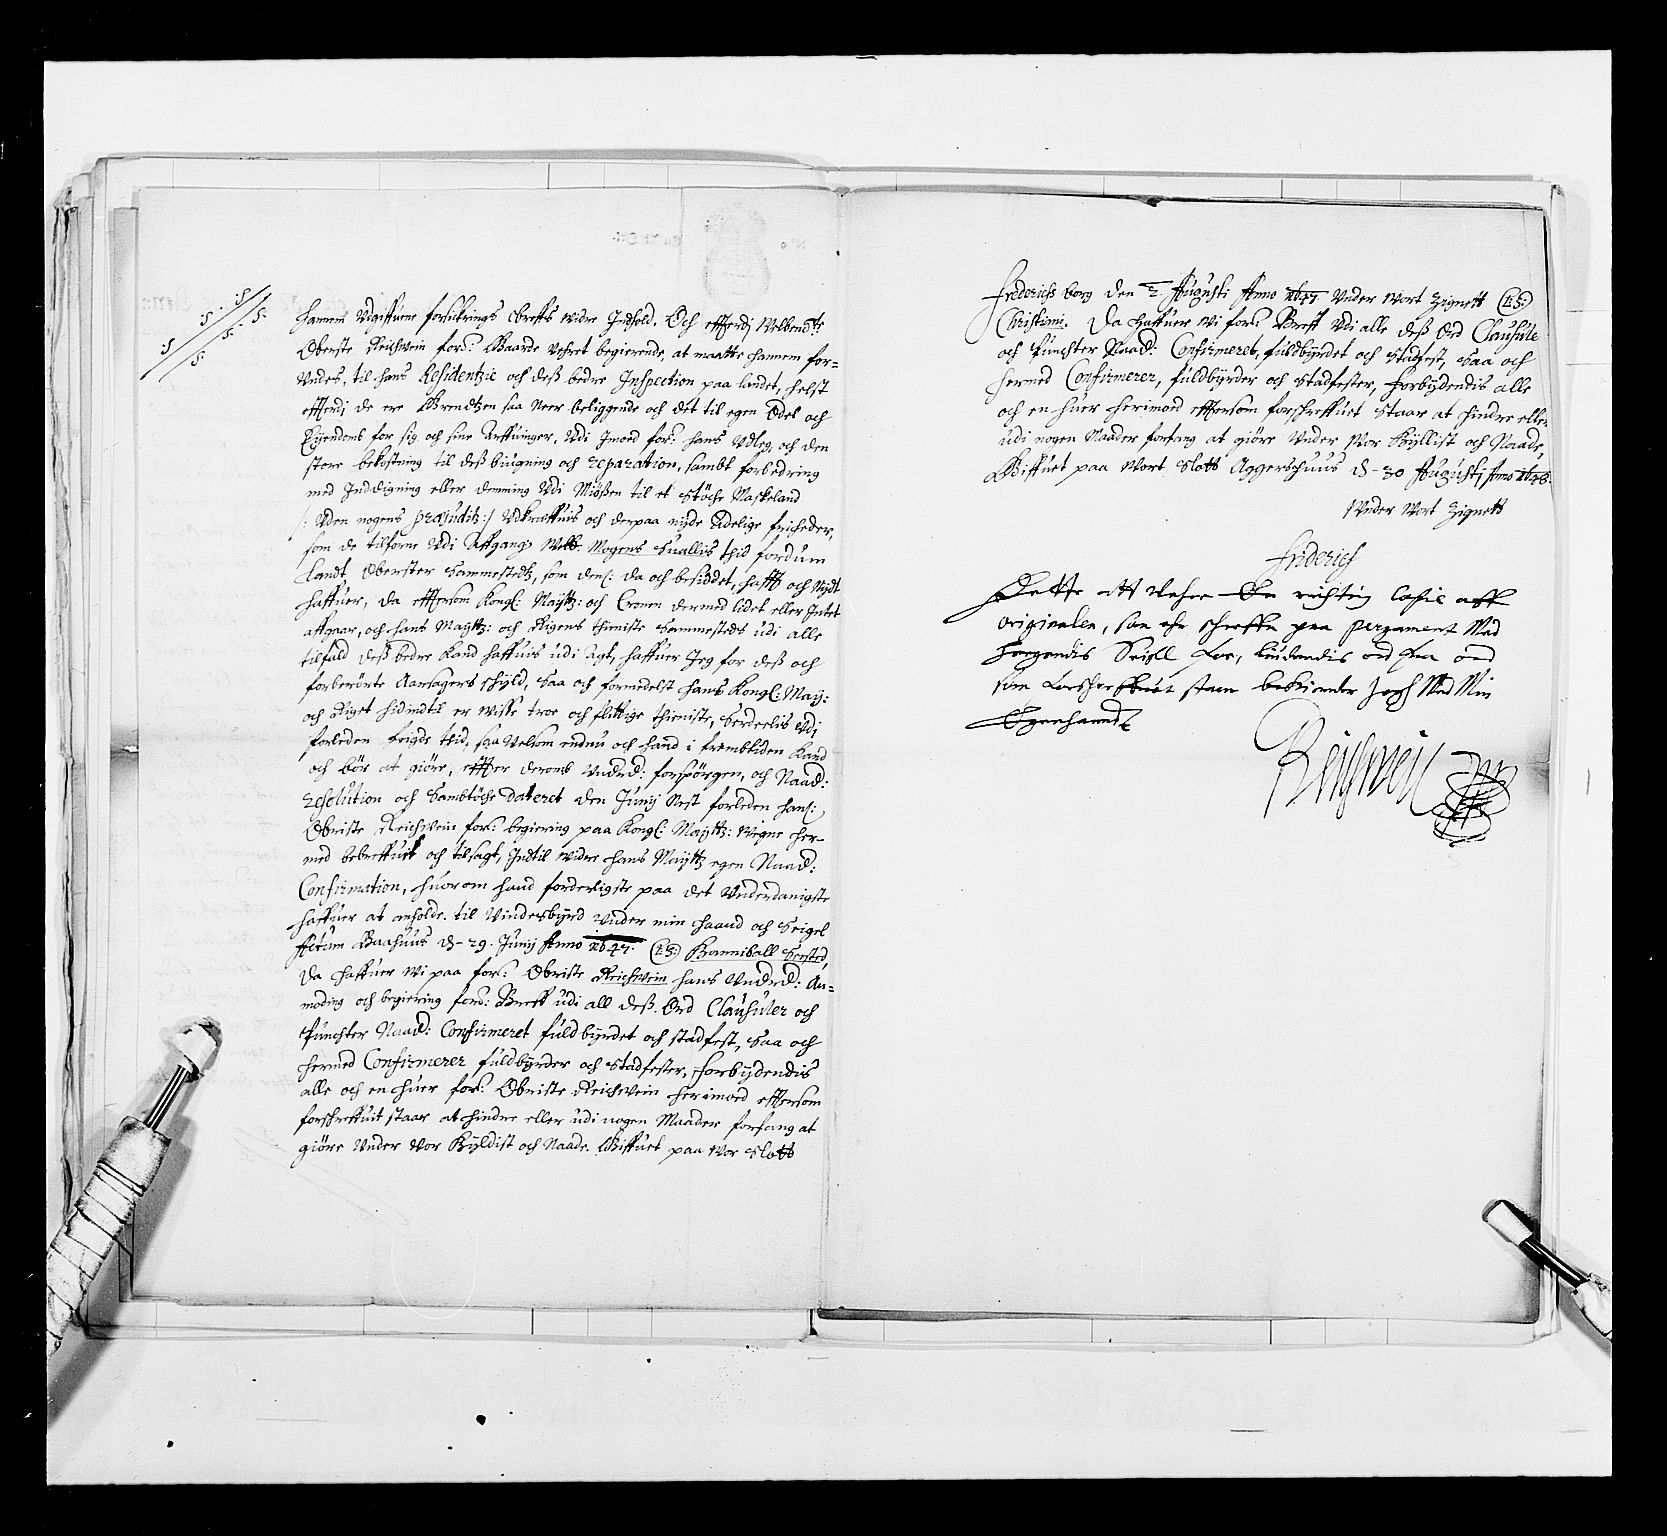 hannem Udgiffuene forsikrings breffs widre Indhold. Och efftterdj Welbemte
Oberste Reichwein fors: Baarde Uehret begierende, at maatte hannem for=
Undes, til hans Residentzie och deß bedre Inspection paa landet, helst
effterdj de ere Grendtzen saa neer beliggende och det til egen Odel och
Eyendomb for sig och sine Arffuinger, Udi Imod fors: hans Udleg, och den
store bekostning til deß biugning och reparation, sambt forbedring
med Inddigning eller demming Udi Miößen til et Stöche Maskeland
/: Uden nogens præjuditz :/ Udkræffuis och derpaa nyde Adelige friheder,
som de tilforne Udi Affgangne Welb: Mogens Suallis thid fordum
Landt Oberster Sammestedtz, som den: da och besiddet, hafft och Nydt
haffuer, da effterson Kongl: Maytz: och Cronen dermed lidet eller Intet
affgaar, och hans Maytz: och Rigens thieniste Sammesteds udi alle
tilfald deß bedre kand haffuis udi Agt, haffuer Jeg for deß och
forberörte Aarsagers schyld, Saa och formedelst hans Kongl: May:
och Riget hidindtil er wisse troe och flittige thieniste, Serdeelis Udj
forleden feigde thid, saa Velsom endnu och hand i frembtiden kand
och bör at giöre, effter deroms Undrd: forspörgen, och Naad:
resolution och Sambtöche dateret den Junij Nest forleden hans:
Obriste Reichwein fors: begiering paa Kongl: Maytz: Wegne her-
med bebreffuit och tilsagt, Indtil widre hans Maytz egen Naad:
Confirmation, huorom hand forderligste paa det Underdanigste
haffuer at anholde. til Vindesbyrd under min haand och Seigel
Actum Baahuus d- 29. Junij Anno 1647. (L.S:) Hanniball Sehsted,
Da haffuer wi paa fors: Obriste Reichwein hans Undrd: An=
moding och begiering fors: Breff udi all deß Ord Clausuler och
Puncter Naad: Confirmeret fuldbyrdet och stadfest, Saa och
hermed Confirmerer fuldbyrder och Stadfester, Forbydendis
alle och en huer fors: Obriste Reichwein herimod effterson
forschreffuit staar at hindre eller udi nogen Maader forfang at
giöre under Vor Hyldist och Naade. Giffuet paa Vor Slott
Frederichs borg den 2 Augusti Anno 1647 Under Wort Zignett (L.S:)
Christian. Da haffuer wi fors: Breff Udi alle deß Ord Clausule
och Puncter Naad: Confirmeret, fuldbyrdet och Stadfest, Saa och
hermed Confirmerer, fuldbyrder och Stadfester, Forbydendis alle
och en huer herimod effterson forschreffuet Staar at hindre eller
udi nogen Maader forfang at giöre Under Vor Hyllist och Naade,
Giffuet paa Wort Slott Aggerschuus d- 30 Augusti Anno 1648.
Under Wort Zignett
Friderich
Dette att Vehre En richtig Copie aff
originalen, som ehr schreffen paa pergament Med
hengendis Seigll for, liudendis ord fra ord
som forschreffuet staar bekiender Jegh Med Min
Egenhaandt
Reichwein